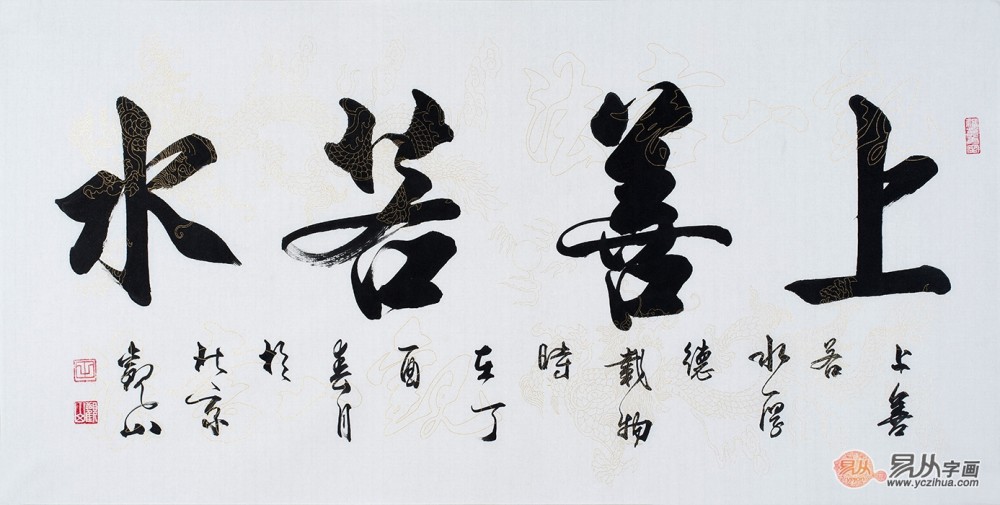 上善若水
上善
若
水厚
德
載物
時
在丁
酉
春月
於
北京
觀山
易从字画
www.yczihua.com